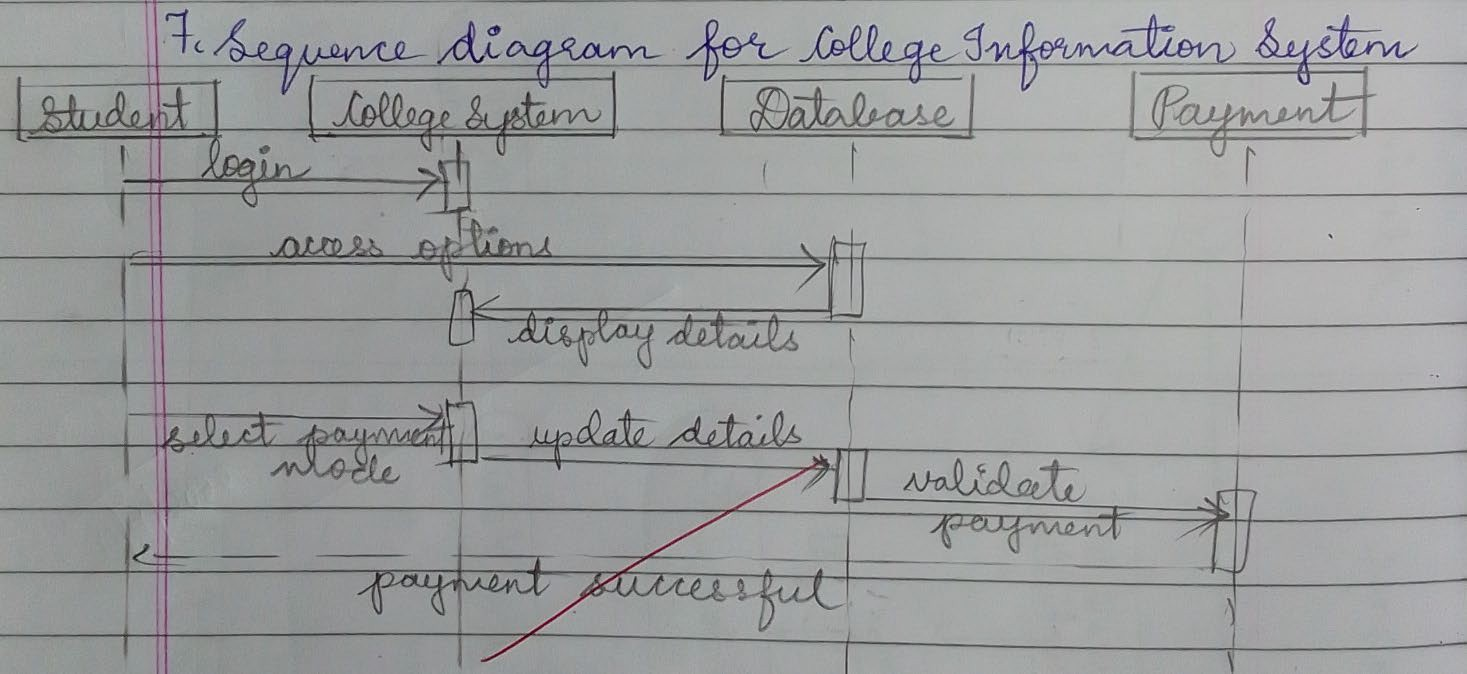 7. Sequence diagram for College Information System
Student College System Database Payment
login
access options
display details
select payment mode
update details
validate payment
payment successful